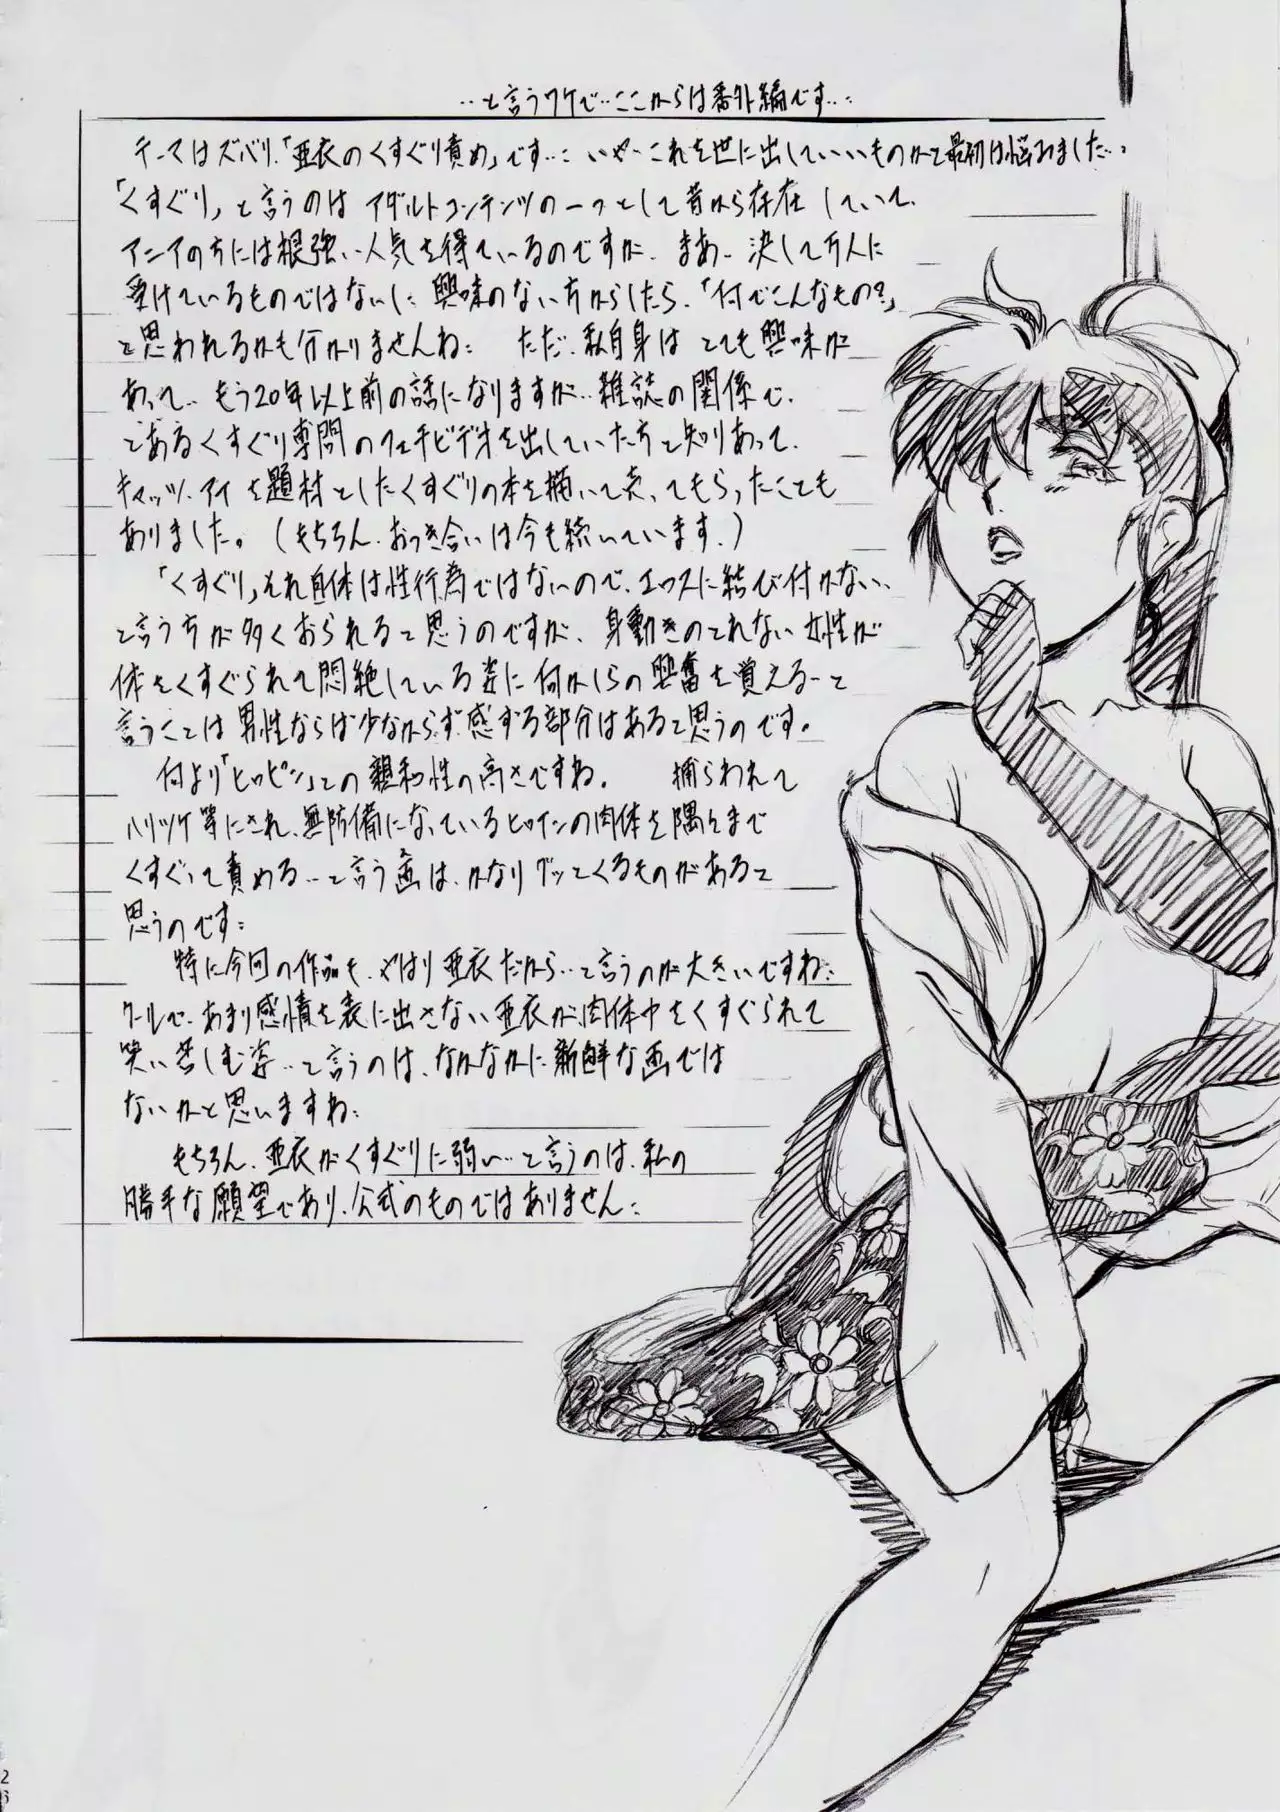 …と言うワケで…ここからは番外編です…
テーマはズバリ「亜衣のくすぐり責め」です… いやーこれを世に出していいものかと最初は悩みました…
「くすぐり」と言うのはアダルトコンテンツの一つとして昔から存在していて、
マニアの方には根強い人気を得ているのですが、まあ、決して万人に
受けているものではないし、興味のない方からしたら、「何でこんなもの?」
と思われるかも分かりませんね。 ただ、私自身はとても興味が
あって、もう20年以上前の話になりますが…雑誌の関係で、
とあるくすぐり専門のフェチビデオを出していた方と知りあって、
キャッツ・アイを題材としたくすぐりの本を描いて売ってもらったことも
ありました。(もちろん、おつき合いは今も続いています。)
「くすぐり」それ自体は性行為ではないので、エロスに結び付かない、
と言う方が多くおられると思うのですが、身動きのとれない女性が
体をくすぐられて悶絶している姿に何かしらの興奮を覚える…と
言うことは男性ならば少なからず感ずる部分はあると思うのです。
何より「ヒロピン」との親和性の高さですね。 捕らわれて
ハリツケ等にされ、無防備になっているヒロインの肉体を隅々まで
くすぐって責める…と言う画は、かなりグッとくるものがあると
思うのです。
特に今回の作品も、やはり亜衣だから…と言うのが大きいですね。
クールで、あまり感情を表に出さない亜衣が肉体中をくすぐられて
笑い苦しむ姿…と言うのは、なかなかに新鮮な画では
ないかと思いますね。
もちろん、亜衣がくすぐりに弱い…と言うのは、私の
勝手な願望であり、公式のものではありません。